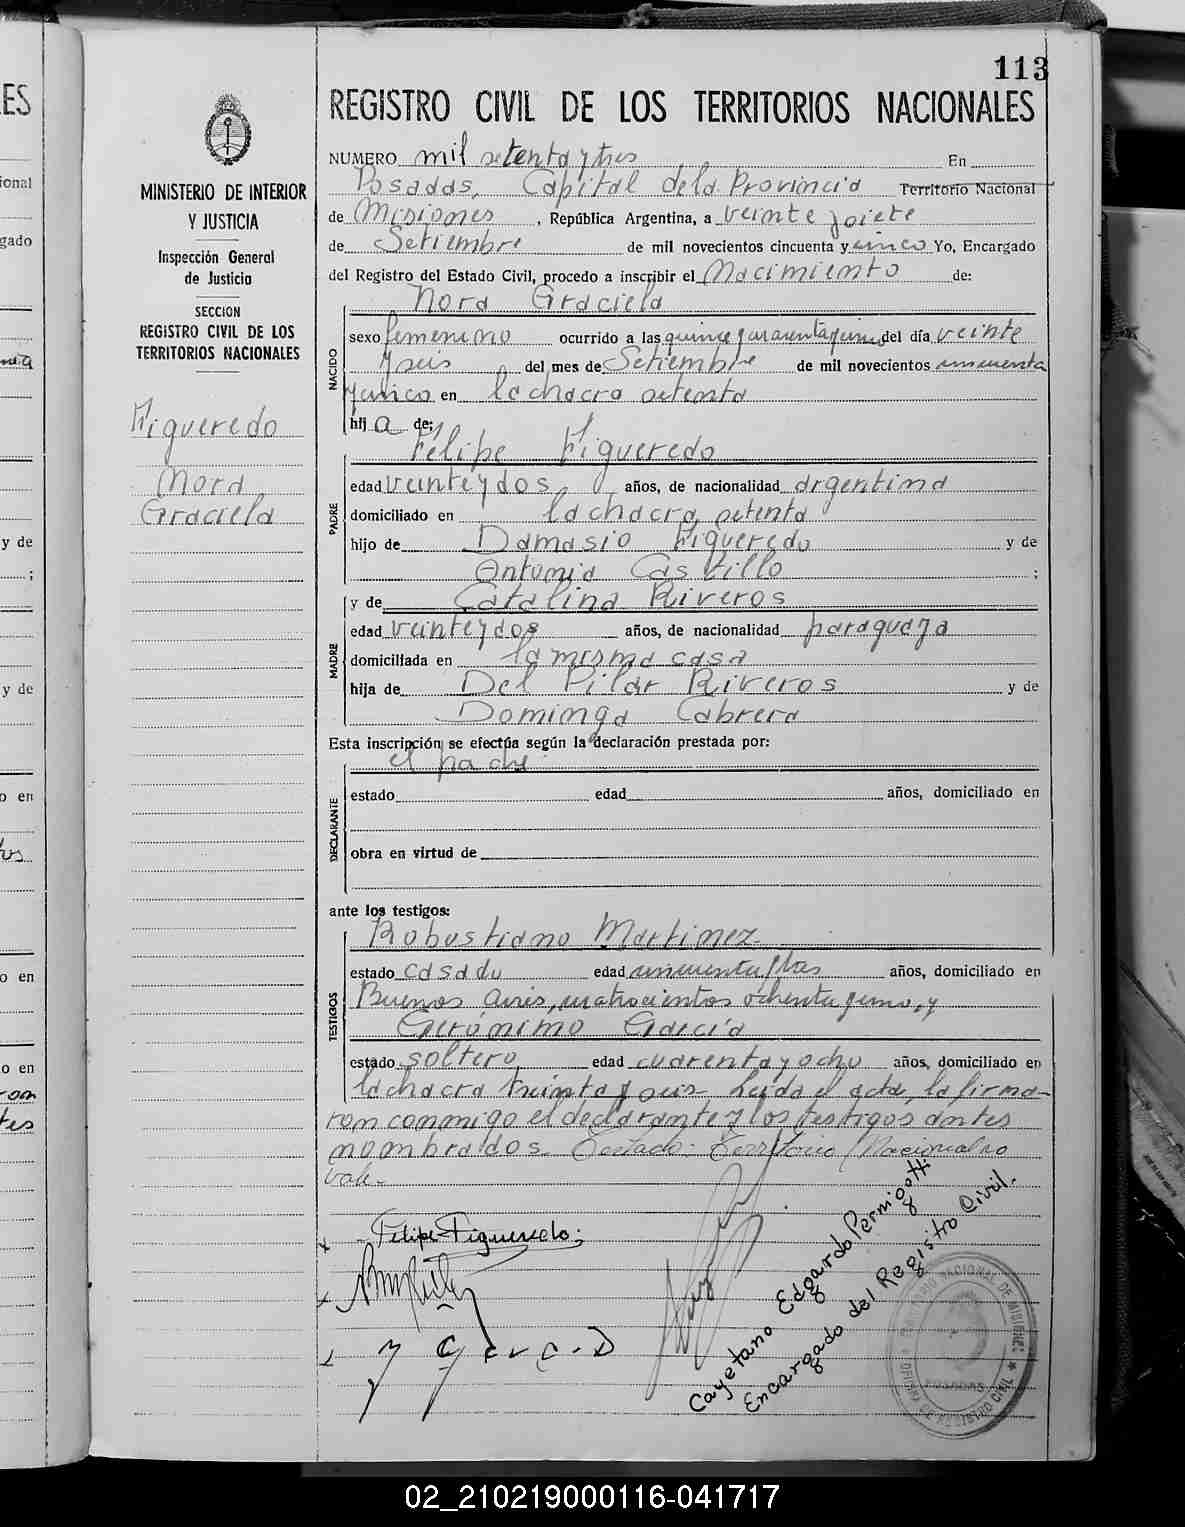 113
REGISTRO CIVIL DE LOS TERRITORIOS NACIONALES
MINISTERIO DE INTERIOR
Y JUSTICIA
Inspección General
de Justicia
SECCION
REGISTRO CIVIL DE LOS
TERRITORIOS NACIONALES
Figueredo
Nora
Graciela
NUMERO mil setenta y tres En
Posadas, Capital de la Provincia Territorio Nacional
de Misiones, República Argentina, a veinte y siete
de Setiembre de mil novecientos cincuenta y cinco Yo, Encargado
del Registro del Estado Civil, procedo a inscribir el Nacimiento de:
Nora Graciela
NACIDO
sexo femenino ocurrido a las quince y cuarenta y cinco del día veinte
y seis del mes de Setiembre de mil novecientos cincuenta
y cinco en la chacra setenta
hija de:
Felipe Figueredo
PADRE
edad veinte y dos años, de nacionalidad argentina
domiciliado en la chacra setenta
hijo de Damasio Figueredo y de
Antonia Castillo ;
y de Catalina Riveros
MADRE
edad veinte y dos años, de nacionalidad paraguaya
domiciliada en la misma casa
hija de Del Pilar Riveros y de
Dominga Cabrera
Esta inscripción se efectúa según la declaración prestada por:
el padre
DECLARANTE
estado edad años, domiciliado en
obra en virtud de
ante los testigos:
Robustiano Martinez
TESTIGOS
estado casado edad cincuenta y tres años, domiciliado en
Buenos Aires, cuatrocientos ochenta y uno, y
Gerónimo García
estado soltero edad cuarenta y ocho años, domiciliado en
la chacra treinta y seis Leída el acta, la firma-
ron conmigo el declarante y los testigos antes
nombrados. Testado: Territorio Nacional no
vale.-
Felipe Figueredo
Cayetano Edgardo Pernigotti
Encargado del Registro Civil.
NACIONAL DE MISIONES
POSADAS
OFICINA DE REGISTRO CIVIL
02_210219000116-041717